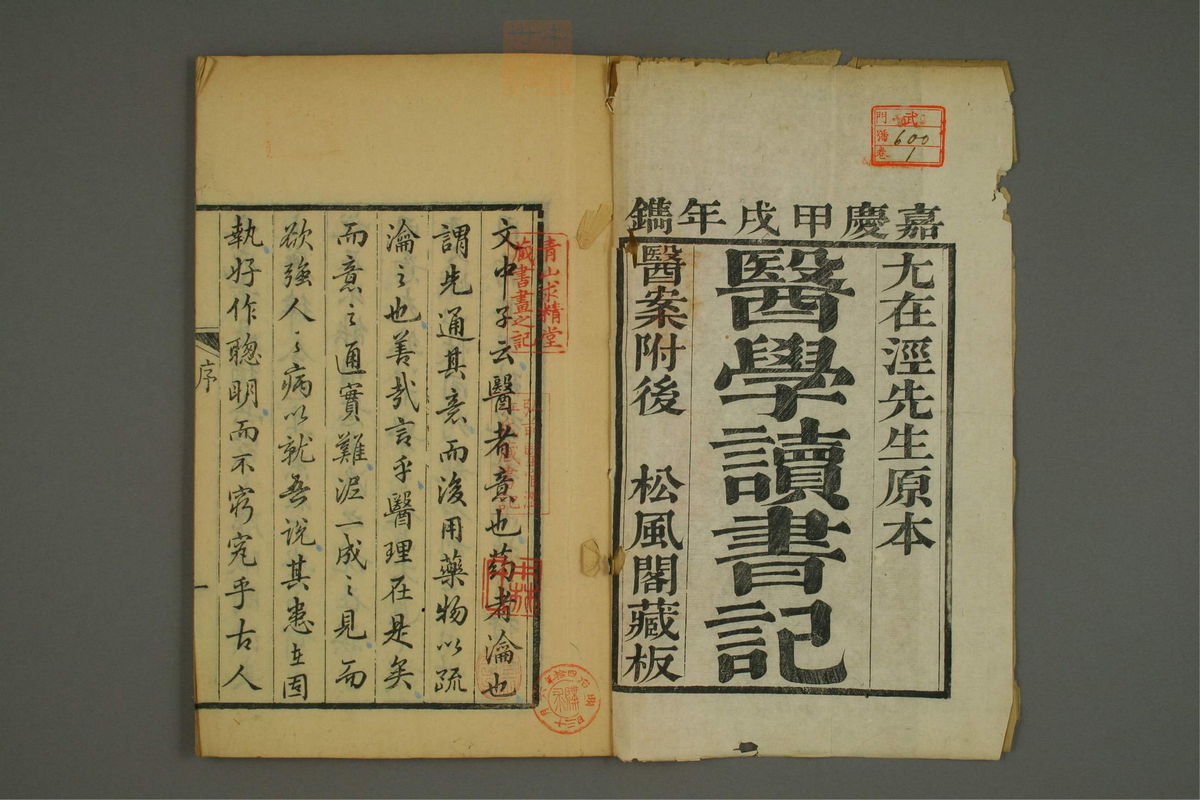 嘉慶甲戌年鐫
尤在涇先生原本
醫學讀書記
醫案附後 松風閣藏板
武
門
號 600
卷 1
文中子云醫者意也药者瀹也
謂先通其意而後用藥物以疏
瀹之也善哉言乎醫理在是矣
而意之通實難泥一成之見而
欲強人之病以就吾說其患在固
執好作聰明而不窮究乎古人
序
一
青山求精堂
蔵書畫之記